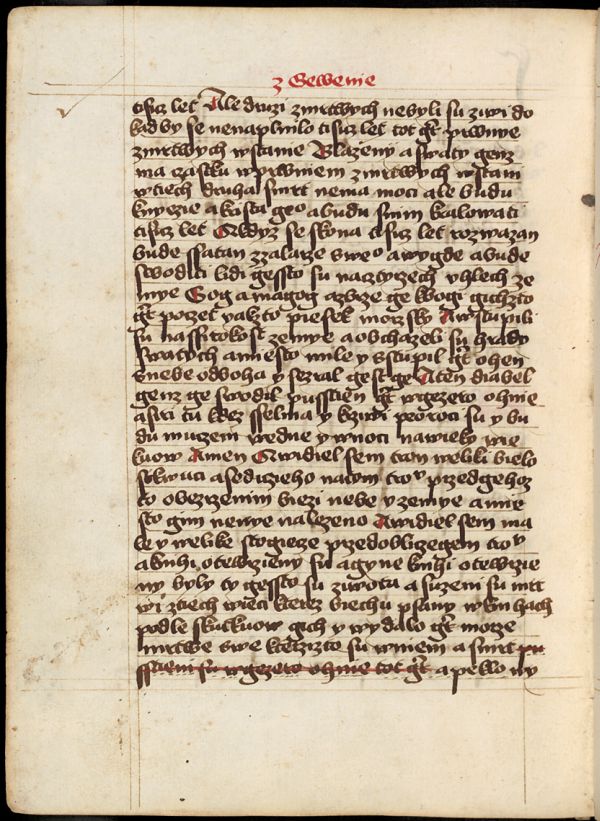 z Gewenie
tisicz let Ale druzi zmrtwych nebyli su ziwi do
kad by se nenaplnilo tisicz let tot gt prwnye
zmrtwych wstanie Blazeny a swaty genz
ma czastku w prwniem zmrtwych wstani
w tiech druha smrt nema moci ale budu
knyezie a krista geo a budu s nim kralowati
tisicz let A kdyz se skona tisicz let rozwazan
bude ssatan z zalarze sweo a wygde a bude
swoditi lidi gessto su na cztyrzech uhlech ze
mye Gog a magog a zbirze ge k bogi gichzto
gt poczet yakzto piesek morzsky A wstupili
su na ssirokost zemye a obchazeli su hrady
swatych a miesto mile y sstupil gt ohen
s nebe od boha y sezral gest ge A ten diabel
genz ge swodil pusstien gt w gezero ohnie
a siri tu kdez sselma y krziwi proroci su y bu
du muczeni we dne y w noci na wieky wie
kuow Amen A widiel sem tron weliki bielo
stkwuci a sediczieho na nom krov przed gehoz
to obezrzenim biezi nebe y zemye a mie
sto gim nenye nalezeno A widiel sem ma
le y welike stogicze przed oblizegem krov
a knihi otewrzieny su a gyne knihi otewrzie
ny byly ty gessto su ziwota a suzeni su mrt
wi z tiech wieci kterez biechu psany w knihach
podle skutkuow gich y wydalo gt morze
mrtwe swe kterzizto su w niem a smrt pu
sstieni su w gezero ohnie tot gt a peklo wy